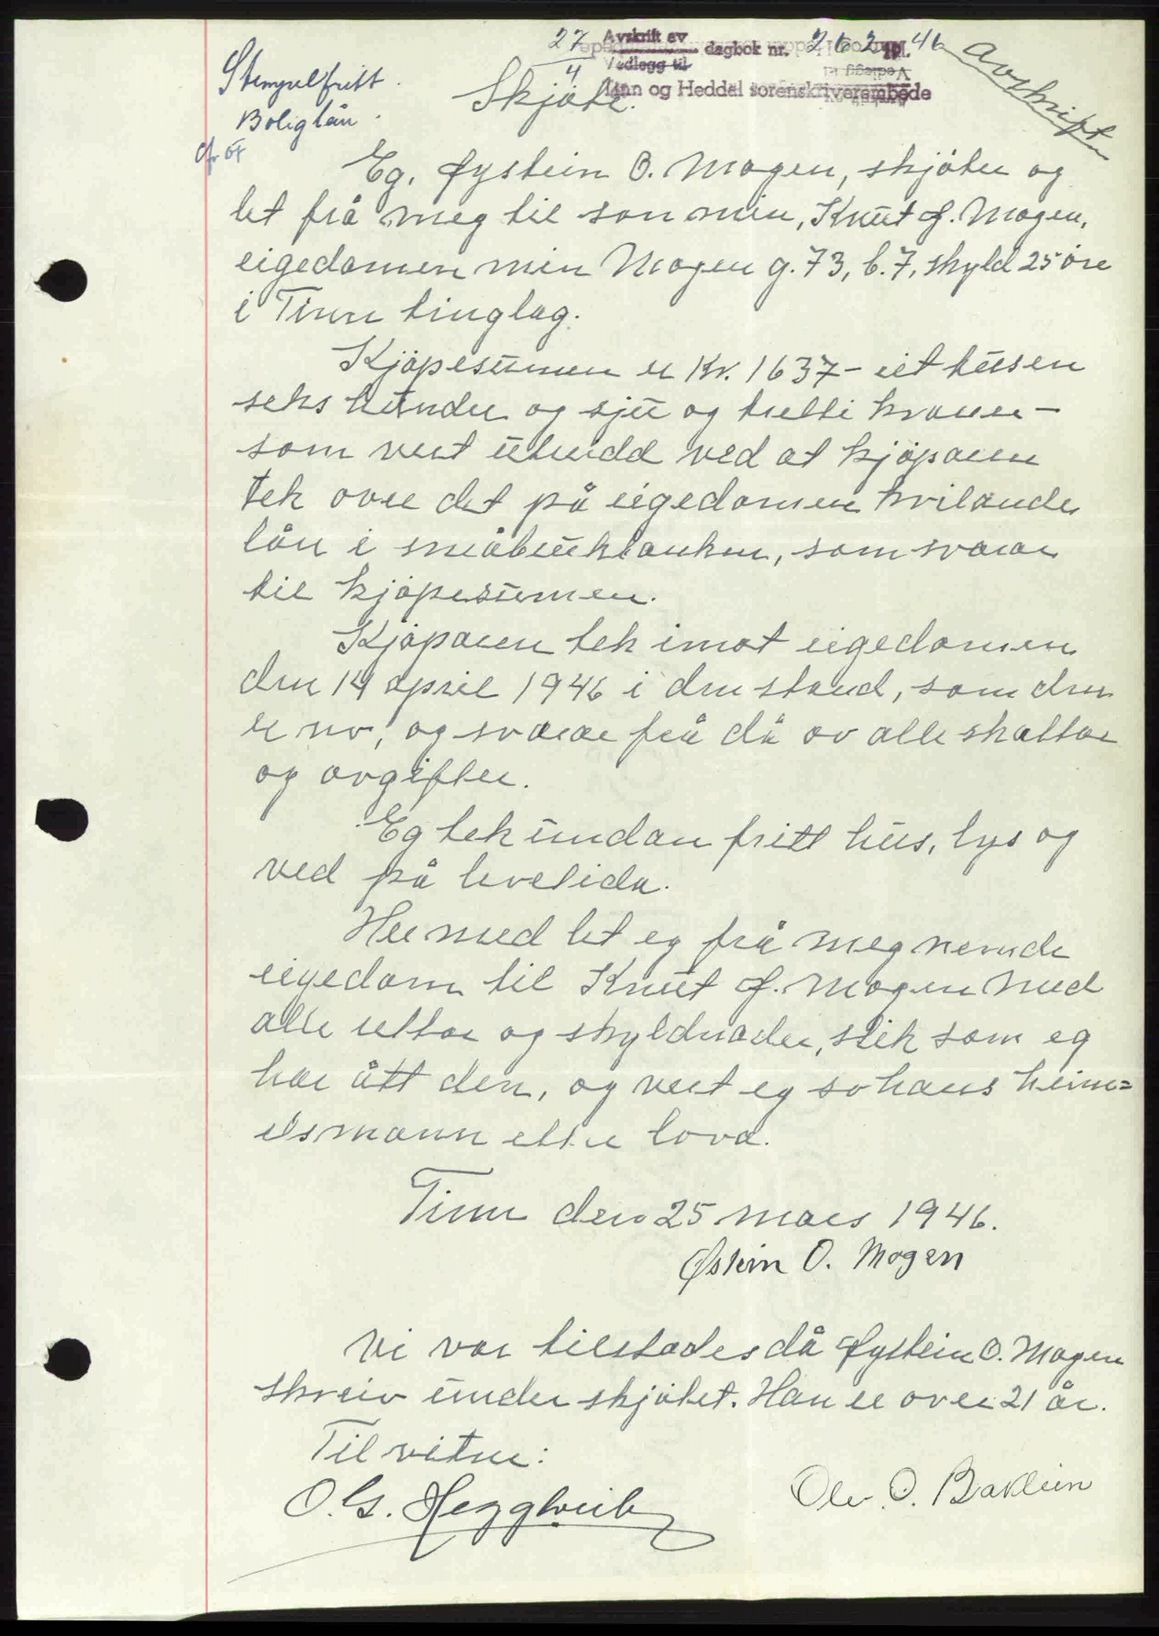 27/4 Avskrift av dagbok nr. 262 1946
Vedlegg til
Tinn og Heddal sorenskriverembede
Avskrift
Stempelfritt.
Boliglån.
Skjøte.
Eg, Øystein O. Mogen, skjøter og
let frå meg til son min, Knut Ø. Mogen,
eigedomen min Mogen g. 73, b. 7, skyld 25 øre
i Tinn tinglag.
Kjøpesumen er Kr. 1637- eit tusen
seks hundre og sju og tretti kroner -
som vert utredd ved at kjøparen
tek over det på eigedomen kvilande
lån i småbrukbanken, som svarar
til kjøpesumen.
Kjøparen tek imot eigedomen
den 14 april 1946 i den stand, som den
er no, og svarar frå då av alle skattar
og avgifter.
Eg tek undan fritt hus, lys og
ved på levetida.
Hermed let eg frå meg nemnde
eigedom til Knut Ø. Mogen med
alle rettar og skyldnader, slik som eg
har ått den, og vert eg so hans heim=
elsmann etter lova.
Tinn den 25 mars 1946.
Østein O. Mogen
Vi var tilstades då Øystein O. Mogen
skreiv under skjøtet. Han er over 21 år.
Til vitne:
O. G. Heggtveit
Olav O. Bakken